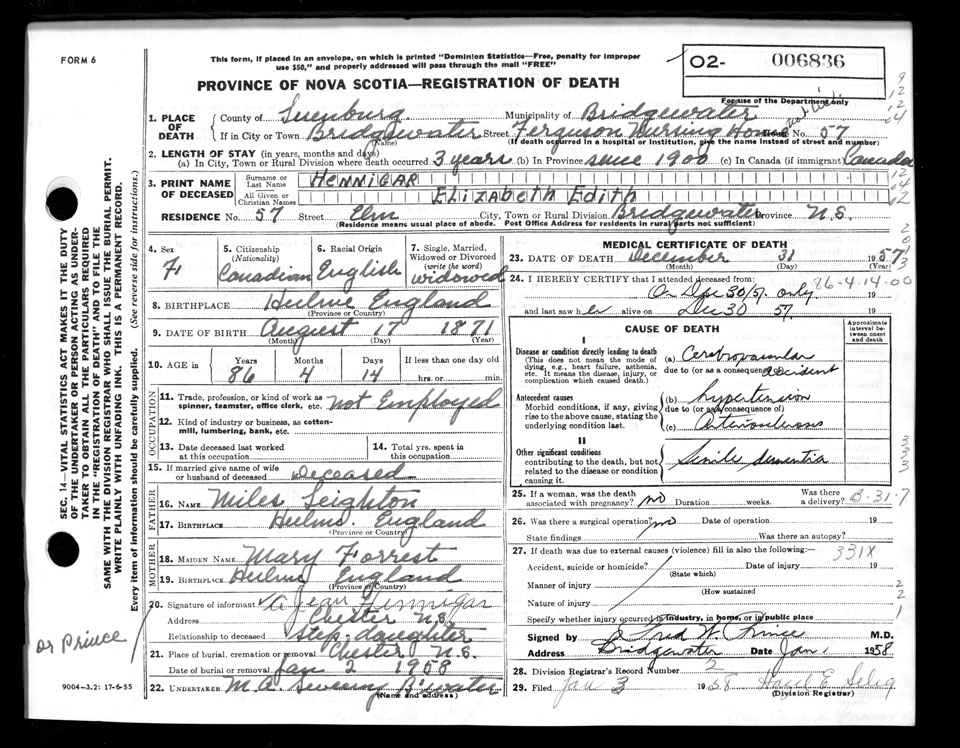 FORM 6
This form, if placed in an envelope, on which is printed "Dominion Statistics—Free, penalty for improper
use $50," and properly addressed will pass through the mail "FREE"
PROVINCE OF NOVA SCOTIA—REGISTRATION OF DEATH
O2- 006836
For use of the Department only
1. PLACE OF DEATH
County of Lunenburg Municipality of Bridgewater
If in City or Town Bridgewater Street Ferguson Nursing Home House No. 57
(Name) (If death occurred in a hospital or institution, give the name instead of street and number)
2. LENGTH OF STAY (in years, months and days)
(a) In City, Town or Rural Division where death occurred 3 years (b) In Province since 1900 (c) In Canada (if immigrant) Canada
3. PRINT NAME OF DECEASED
Surname or Last Name HENNIGAR
All Given or Christian Names ELIZABETH EDITH
RESIDENCE No. 57 Street Elm City, Town or Rural Division Bridgewater Province N.S.
(Residence means usual place of abode. Post Office Address for residents in rural parts not sufficient)
4. Sex F
5. Citizenship (Nationality) Canadian
6. Racial Origin English
7. Single, Married, Widowed or Divorced (write the word) widowed
8. BIRTHPLACE Hulme England
(Province or Country)
9. DATE OF BIRTH August 17 1871
(Month) (Day) (Year)
10. AGE in Years 86 Months 4 Days 14 If less than one day old hrs. or min.
OCCUPATION
11. Trade, profession, or kind of work as spinner, teamster, office clerk, etc. Not Employed
12. Kind of industry or business, as cotton-mill, lumbering, bank, etc.
13. Date deceased last worked at this occupation
14. Total yrs. spent in this occupation
15. If married give name of wife or husband of deceased Deceased
FATHER
16. NAME Miles Leighton
17. BIRTHPLACE Hulme. England
(Province or Country)
MOTHER
18. MAIDEN NAME Mary Forrest
19. BIRTHPLACE Hulme England
(Province or Country)
20. Signature of informant A Jean Hennigar
Address Chester N.S.
Relationship to deceased Step-daughter
21. Place of burial, cremation or removal Chester N.S.
Date of burial or removal Jan 2 1958
22. UNDERTAKER M.A. Sweeny B'water
(Name and address)
MEDICAL CERTIFICATE OF DEATH
23. DATE OF DEATH December 31 1957
(Month) (Day) (Year)
24. I HEREBY CERTIFY that I attended deceased from:
86-4-14-00
On Dec 30/57 only 19
and last saw her alive on Dec 30 57 19
CAUSE OF DEATH
Approximate interval between onset and death
I
Disease or condition directly leading to death
(This does not mean the mode of dying, e.g., heart failure, asthenia, etc. It means the disease, injury, or complication which caused death.)
(a) Cerebrovascular accident
due to (or as a consequence of)
Antecedent causes
Morbid conditions, if any, giving rise to the above cause, stating the underlying condition last.
(b) hypertension
due to (or as a consequence of)
(c) Arteriosclerosis
II
Other significant conditions
contributing to the death, but not related to the disease or condition causing it.
Senile dementia
25. If a woman, was the death associated with pregnancy? no Duration weeks. Was there a delivery?
B-31-7
26. Was there a surgical operation? no Date of operation 19
State findings Was there an autopsy?
27. If death was due to external causes (violence) fill in also the following:—
331X
Accident, suicide or homicide? Date of injury 19
(State which)
Manner of injury
(How sustained)
Nature of injury
Specify whether injury occurred in industry, in home, or in public place
Signed by Fred W. Prince M.D.
Address Bridgewater Date Jan 1 1958
28. Division Registrar's Record Number 2
29. Filed Jan 3 1958
(Division Registrar)
SEC. 14—VITAL STATISTICS ACT MAKES IT THE DUTY
OF THE UNDERTAKER OR PERSON ACTING AS UNDER-
TAKER TO OBTAIN ALL THE PARTICULARS REQUIRED
IN THE "REGISTRATION OF DEATH" AND TO FILE THE
SAME WITH THE DIVISION REGISTRAR WHO SHALL ISSUE THE BURIAL PERMIT.
WRITE PLAINLY WITH UNFADING INK. THIS IS A PERMANENT RECORD.
Every item of information should be carefully supplied. (See reverse side for instructions.)
Dr Prince
9004—3.2: 17-6-55